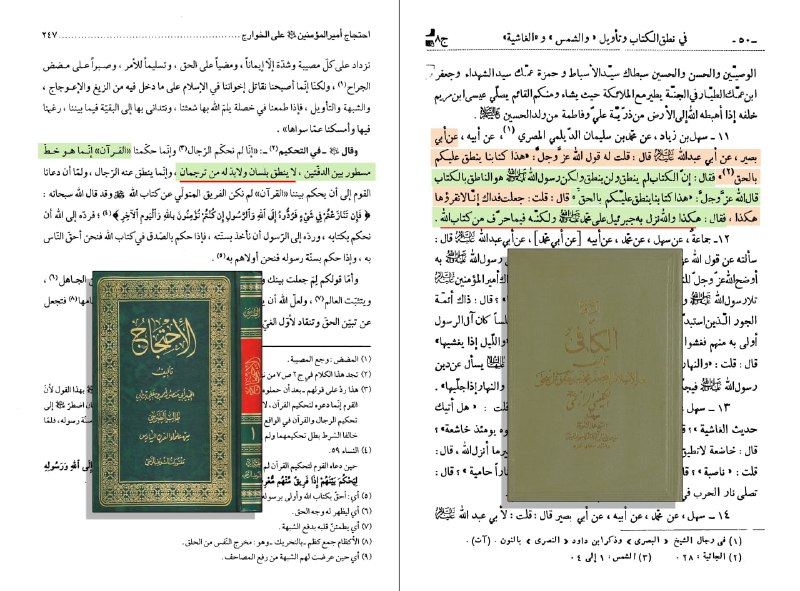 ج٨
في نطق الكتاب وتأويل «والشمس» و«الغاشية»
-٥٠-
الوصيّين والحسن والحسين سبطاك سيّدا الأسباط و حمزة عمّك سيد الشهداء وجعفر
ابن عمّك الطيّار في الجنّة يطير مع الملائكة حيث يشاء ومنكم القائم يصلّي عيسى ابن مريم
خلفه إذا أهبطه الله إلى الأرض من ذرّيّة عليّ وفاطمة من ولد الحسين
١١ – سهل بن زياد، عن محمّد بن سليمان الدّيلمي المصري (١)، عن أبيه، عن أبي
بصير، عن أبي عبدالله قال: قلت له قول الله عزّ وجلّ: «هذا كتابنا ينطق عليكم
بالحقّ (٢)» فقال: إنّ الكتاب لم ينطق ولن ينطق ولكن رسول الله هو الناطق بالكتاب
قال الله عزّ وجلّ: «هذا كتابنا ينطق عليكم بالحقّ» قال: قلت: جعلت فداك إنّا لانقرؤها
هكذا، فقال: هكذا والله نزل به جبرئيل على محمّد ولكنّه فيما حرّف من كتاب الله.
١٢ – جماعة، عن سهل، عن محمّد، عن أبيه [عن أبي محمّد]، عن أبي عبدالله قال:
سألته عن قول الله
رسول الله به
أوضح الله عزّ وجلّ للنا
أمير المؤمنين
تلا رسول الله
قال: ذاك أئمّة
الجور الّذين استبدّ
كان آل الرسول
أولى به منهم فغشوا
«والليل إذا يغشيها»
قال: قلت: «والنهار
يسأل عن دين
رسول الله فيج
والنهار إذا جلّيها».
١٣ – سهل، عن محمّد
قلت: «هل أتيك
حديث الغاشية»؟ قال
وجوه يومئذ خاشعة»
قال: خاضعة لاتطيق
ما أنزل الله، قال:
قلت: «ناصبة»؟ قال:
ناراً حامية»؟ قال:
تصلى نار الحرب في
١٤ – سهل، عن محمّد، عن أبيه، عن أبي بصير قال: قلت: لأبي عبدالله
(١) في رجال الشيخ «البصرى» وذكر ابن داود «النصرى» بالنون. (آت).
(٢) الجاثية: ٢٨. (٣) الشمس: ١ إلى ٤.
الكافي
احتجاج أمير المؤمنين على الخوارج
٢٤٧
نزداد على كلّ مصيبة وشدّة إلّا إيماناً، ومضياً على الحق، وتسليماً للأمر، وصبراً على مضض
الجراح (١)، ولكنّا إنّما أصبحنا نقاتل إخواننا في الإسلام على ما دخل فيه من الزيغ والإعوجاج،
والشبهة والتأويل، فإذا طمعنا في خصلة يلمّ الله بها شعثنا، ونتدانى بها إلى البقيّة فيما بيننا، رغبنا
فيها وأمسكنا عمّا سواها».
وقال - في التحكيم (٢) -: «إنّا لم نحكّم الرّجال (٣) وإنّما حكّمنا «القرآن» إنّما هو خطّ
مسطور بين الدفّتين، لا ينطق بلسان ولابدّ له من ترجمان، وإنّما ينطق عنه الرجال، ولمّا أن دعانا
القوم إلى أن يحكم بيننا «القرآن» لم نكن الفريق المتولّي عن كتاب الله وقد قال الله سبحانه:
﴿فإن تنازعتم في شيء فردّوه إلى الله والرسول إن كنتم تؤمنون بالله واليوم الآخر﴾ (٤)؛ فردّه إلى الله أن
نحكم بكتابه، وردّه إلى الرّسول أن نأخذ بسنّته، فإذا حكم بالصّدق في كتاب الله فنحن أحقّ النّاس
به، وإذا حكم بسنّة رسوله فنحن أولاهم به (٥).
وأمّا قولكم لِمَ جعلت بينك و
الجاهل (٦)،
ويتثبّت العالم (٧)، ولعلّ الله أن
فتعجل
عن تبيّن الحقّ وتنقاد لأوّل الغيّ
(١) المضض: وجع المصيبة.
(٢) تجد هذا الكلام في ج ٢ ص ٧ من
(٣) هذا ردّ على قولهم - بعد أن حملوه
بهذا القول لأنّ
القوم إنّما دعوه لتحكيم القرآن، لم
اضطرّ إلى
تحكيم الرجال والقرآن في الواقع
سنّة رسوله، فلمّا
خالفا الشرط بطل تحكيمهما ولم
(٤) النساء ٥٩.
حين دعاه القوم لتحكيم القرآن لم
إلى الله ورسوله
ليحكم بينهم إذا فريق منهم معر
(٥) أي: أحقّ بكتاب الله وأولى برسوله
(٦) أي ليظهر له وجه الحق.
(٧) أي يطمئنّ قلبه بدفع الشبهة.
(٨) الأكظام جمع كظم - بالتحريك - وهو: مخرج النّفس من الحلق.
(٩) أي حين عرضت لهم الشبهة من رفع المصاحف.
الاحتجاج
تأليف
١